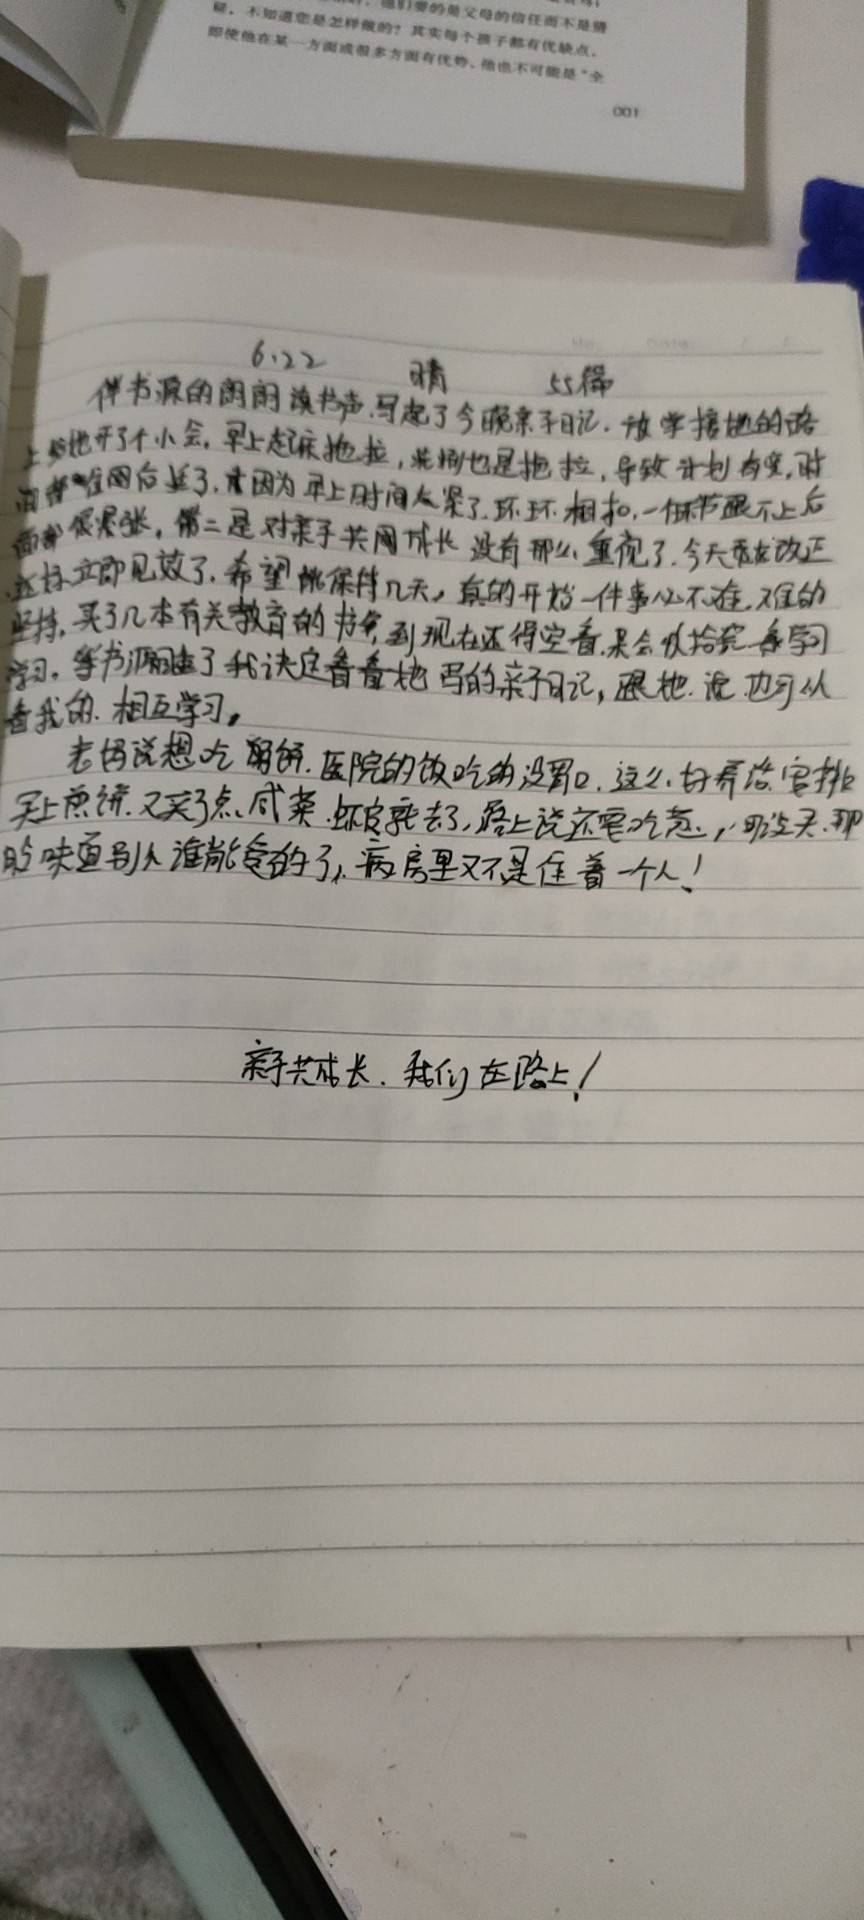 他们要的是父母的信任而不是猜
疑，不知道您是怎样做的？其实每个孩子都有优缺点，
即使他在某一方面或很多方面有优势，他也不可能是“全
001
6.22 晴 55篇
伴书源的朗朗读书声，写起了今晚亲子日记．放学接她的路
上给她开了个小会，早上起床拖拉，洗刷也是拖拉，导致计划有变，时
间都往后延了，才因为早上时间太紧了．环环相扣，一环节跟不上后
面都很紧张，第二是对亲子共同成长没有那么重视了．今天改正
立即见效了．希望能保持几天，真的开始一件事心不难，难的
坚持，买了几本有关教育的书，到现在还得空看，学习
学习．等书源睡了我决定看看她写的亲子日记，跟她说也可以
看我的．相互学习，
老妈说想吃煎饼．医院的饭吃的没胃口．这么
买上煎饼．又买了点咸菜．虾皮就去了，路上说还要吃葱，可没买．那
的味道别人谁能受的了，病房里又不是住着一个人！
亲子共成长．我们在路上！